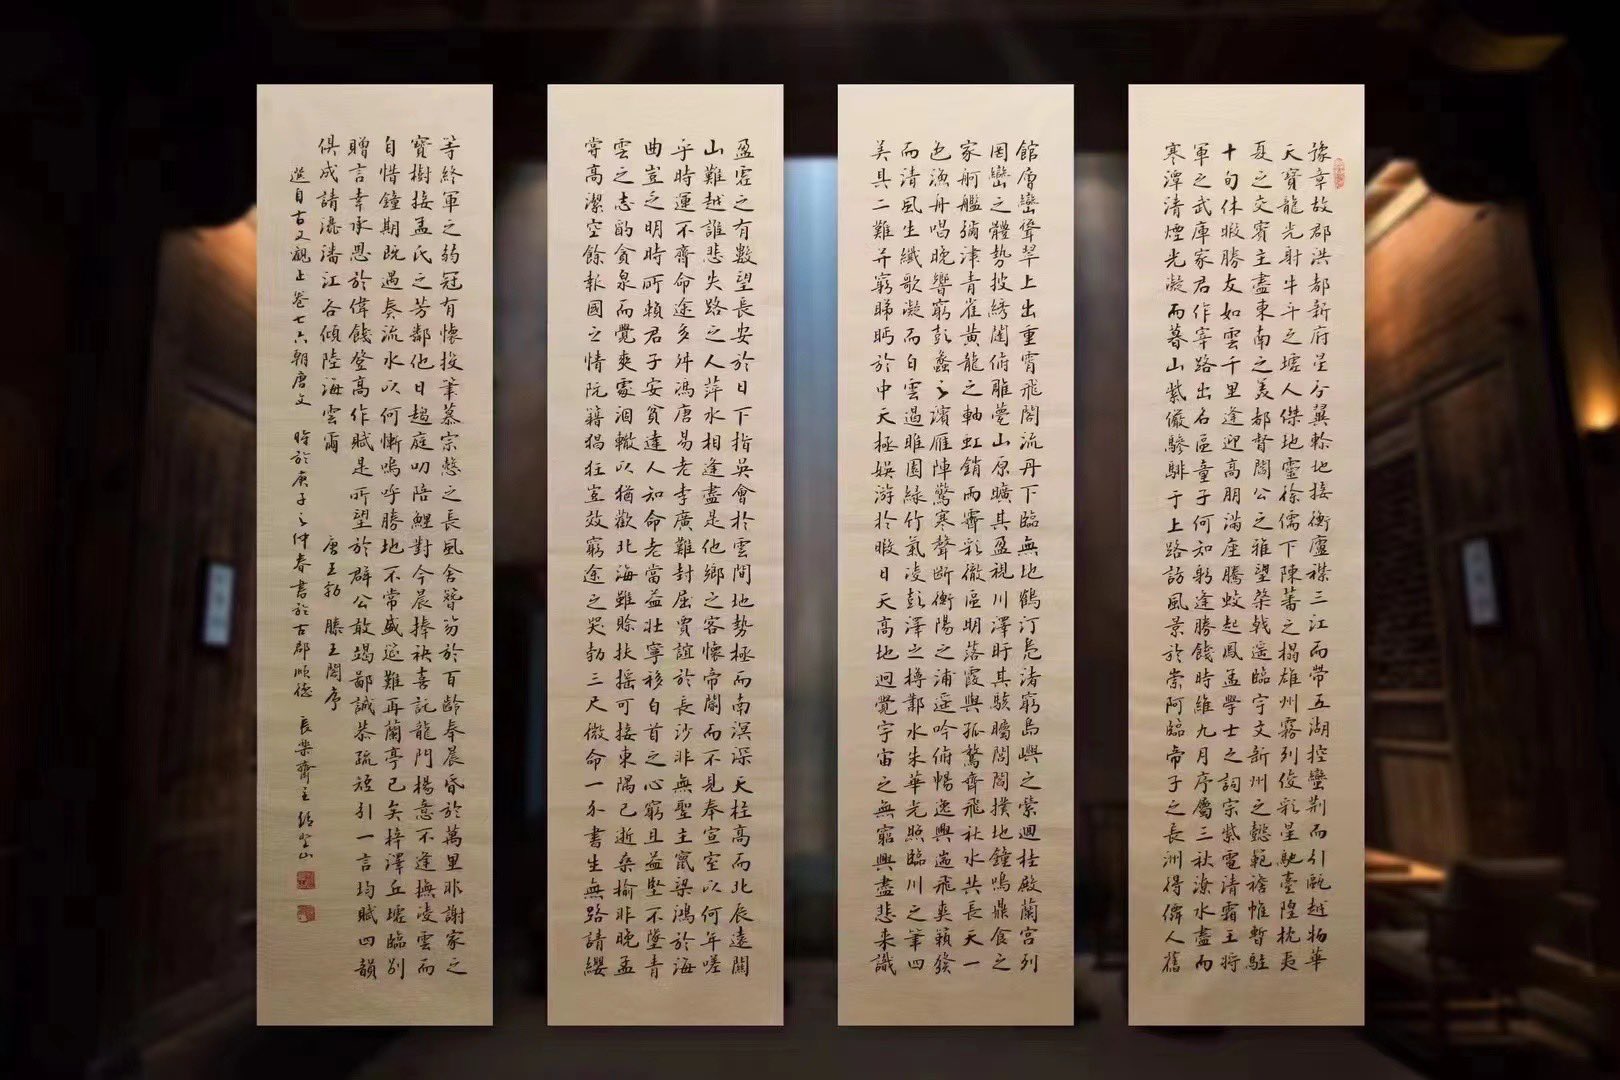 豫章故郡洪都新府星分翼軫地接衡廬襟三江而帶五湖控蠻荆而引甌越物華
天寶龍光射牛斗之墟人傑地靈徐孺下陳蕃之榻雄州霧列俊彩星馳臺隍枕夷
夏之交賓主盡東南之美都督閻公之雅望棨戟遥臨宇文新州之懿範襜帷暫駐
十旬休暇勝友如雲千里逢迎高朋滿座騰蛟起鳳孟學士之詞宗紫電清霜王將
軍之武庫家君作宰路出名區童子何知躬逢勝餞時維九月序屬三秋潦水盡而
寒潭清煙光凝而暮山紫儼驂騑于上路訪風景於崇阿臨帝子之長洲得僊人舊
館層巒聳翠上出重霄飛閣流丹下臨無地鶴汀鳧渚窮島嶼之縈迴桂殿蘭宫列
岡巒之體勢披綉闥俯雕甍山原曠其盈視川澤盱其駭矚閭閻撲地鐘鳴鼎食之
家舸艦彌津青雀黄龍之軸虹銷雨霽彩徹區明落霞與孤鶩齊飛秋水共長天一
色漁舟唱晚響窮彭蠡之濱雁陣驚寒聲斷衡陽之浦遥吟俯暢逸興遄飛爽籟發
而清風生纖歌凝而白雲遏睢園緑竹氣凌彭澤之樽鄴水朱華光照臨川之筆四
美具二難并窮睇眄於中天極娱游於暇日天高地迥覺宇宙之無窮興盡悲來識
盈虚之有數望長安於日下指吴會於雲間地勢極而南溟深天柱高而北辰遠關
山難越誰悲失路之人萍水相逢盡是他鄉之客懷帝閽而不見奉宣室以何年嗟
乎時運不齊命途多舛馮唐易老李廣難封屈賈誼於長沙非無聖主竄梁鴻於海
曲豈乏明時所賴君子安貧達人知命老當益壯寧移白首之心窮且益堅不墜青
雲之志酌貪泉而覺爽處涸轍以猶歡北海雖賒扶摇可接東隅已逝桑榆非晚孟
嘗高潔空餘報國之情阮籍猖狂豈效窮途之哭勃三尺微命一介書生無路請纓
等終軍之弱冠有懷投筆慕宗慤之長風舍簪笏於百齡奉晨昏於萬里非謝家之
寶樹接孟氏之芳鄰他日趨庭叨陪鯉對今晨捧袂喜託龍門楊意不逢撫凌雲而
自惜鐘期既遇奏流水以何慚嗚呼勝地不常盛筵難再蘭亭已矣梓澤丘墟臨别
贈言幸承恩於偉餞登高作賦是所望於群公敢竭鄙誠恭疏短引一言均賦四韻
俱成請灑潘江各傾陸海雲爾 唐王勃 滕王閣序
選自古文觀止卷七六朝唐文 時於庚子之仲春書於古郡順德 長樂齋主